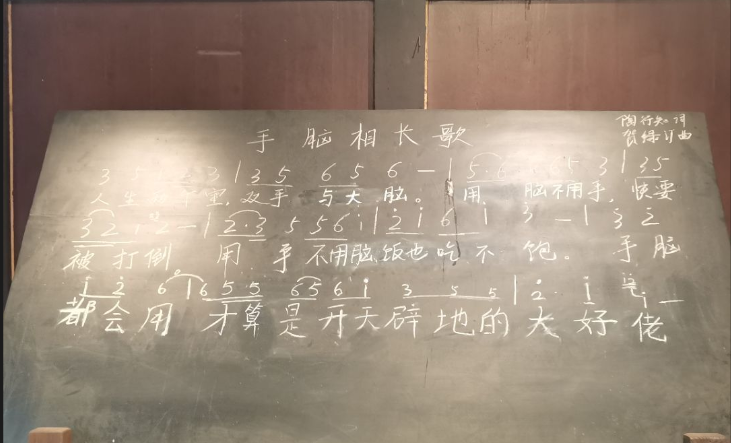 手脑相长歌
陶行知 词
贺绿汀 曲
3 3 | 3 5 6 5 6 — | 5 3 | 3 5
人生 双手 与大脑。用 脑不用手,快要
3 2 i 2 — | 2·3 5 5 6 i | 2 i 6 i 3 — | 3 2
被打倒 用手不用脑饭也吃不饱。手脑
i 2 6 | 6 5 5 6 5 6 i 3 5 5 | 2· i i —
都会用 才算是开天辟地的大好佬